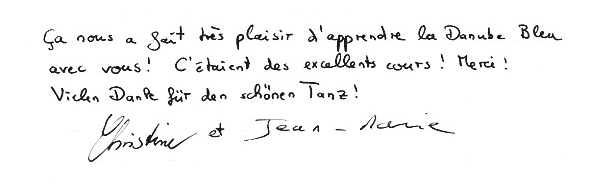 Ça nous a fait très plaisir d'apprendre la Danube Bleu
avec vous! C'étaient des excellents cours! Merci!
Vielen Dank für den schönen Tanz!
Christine et Jean-Marie